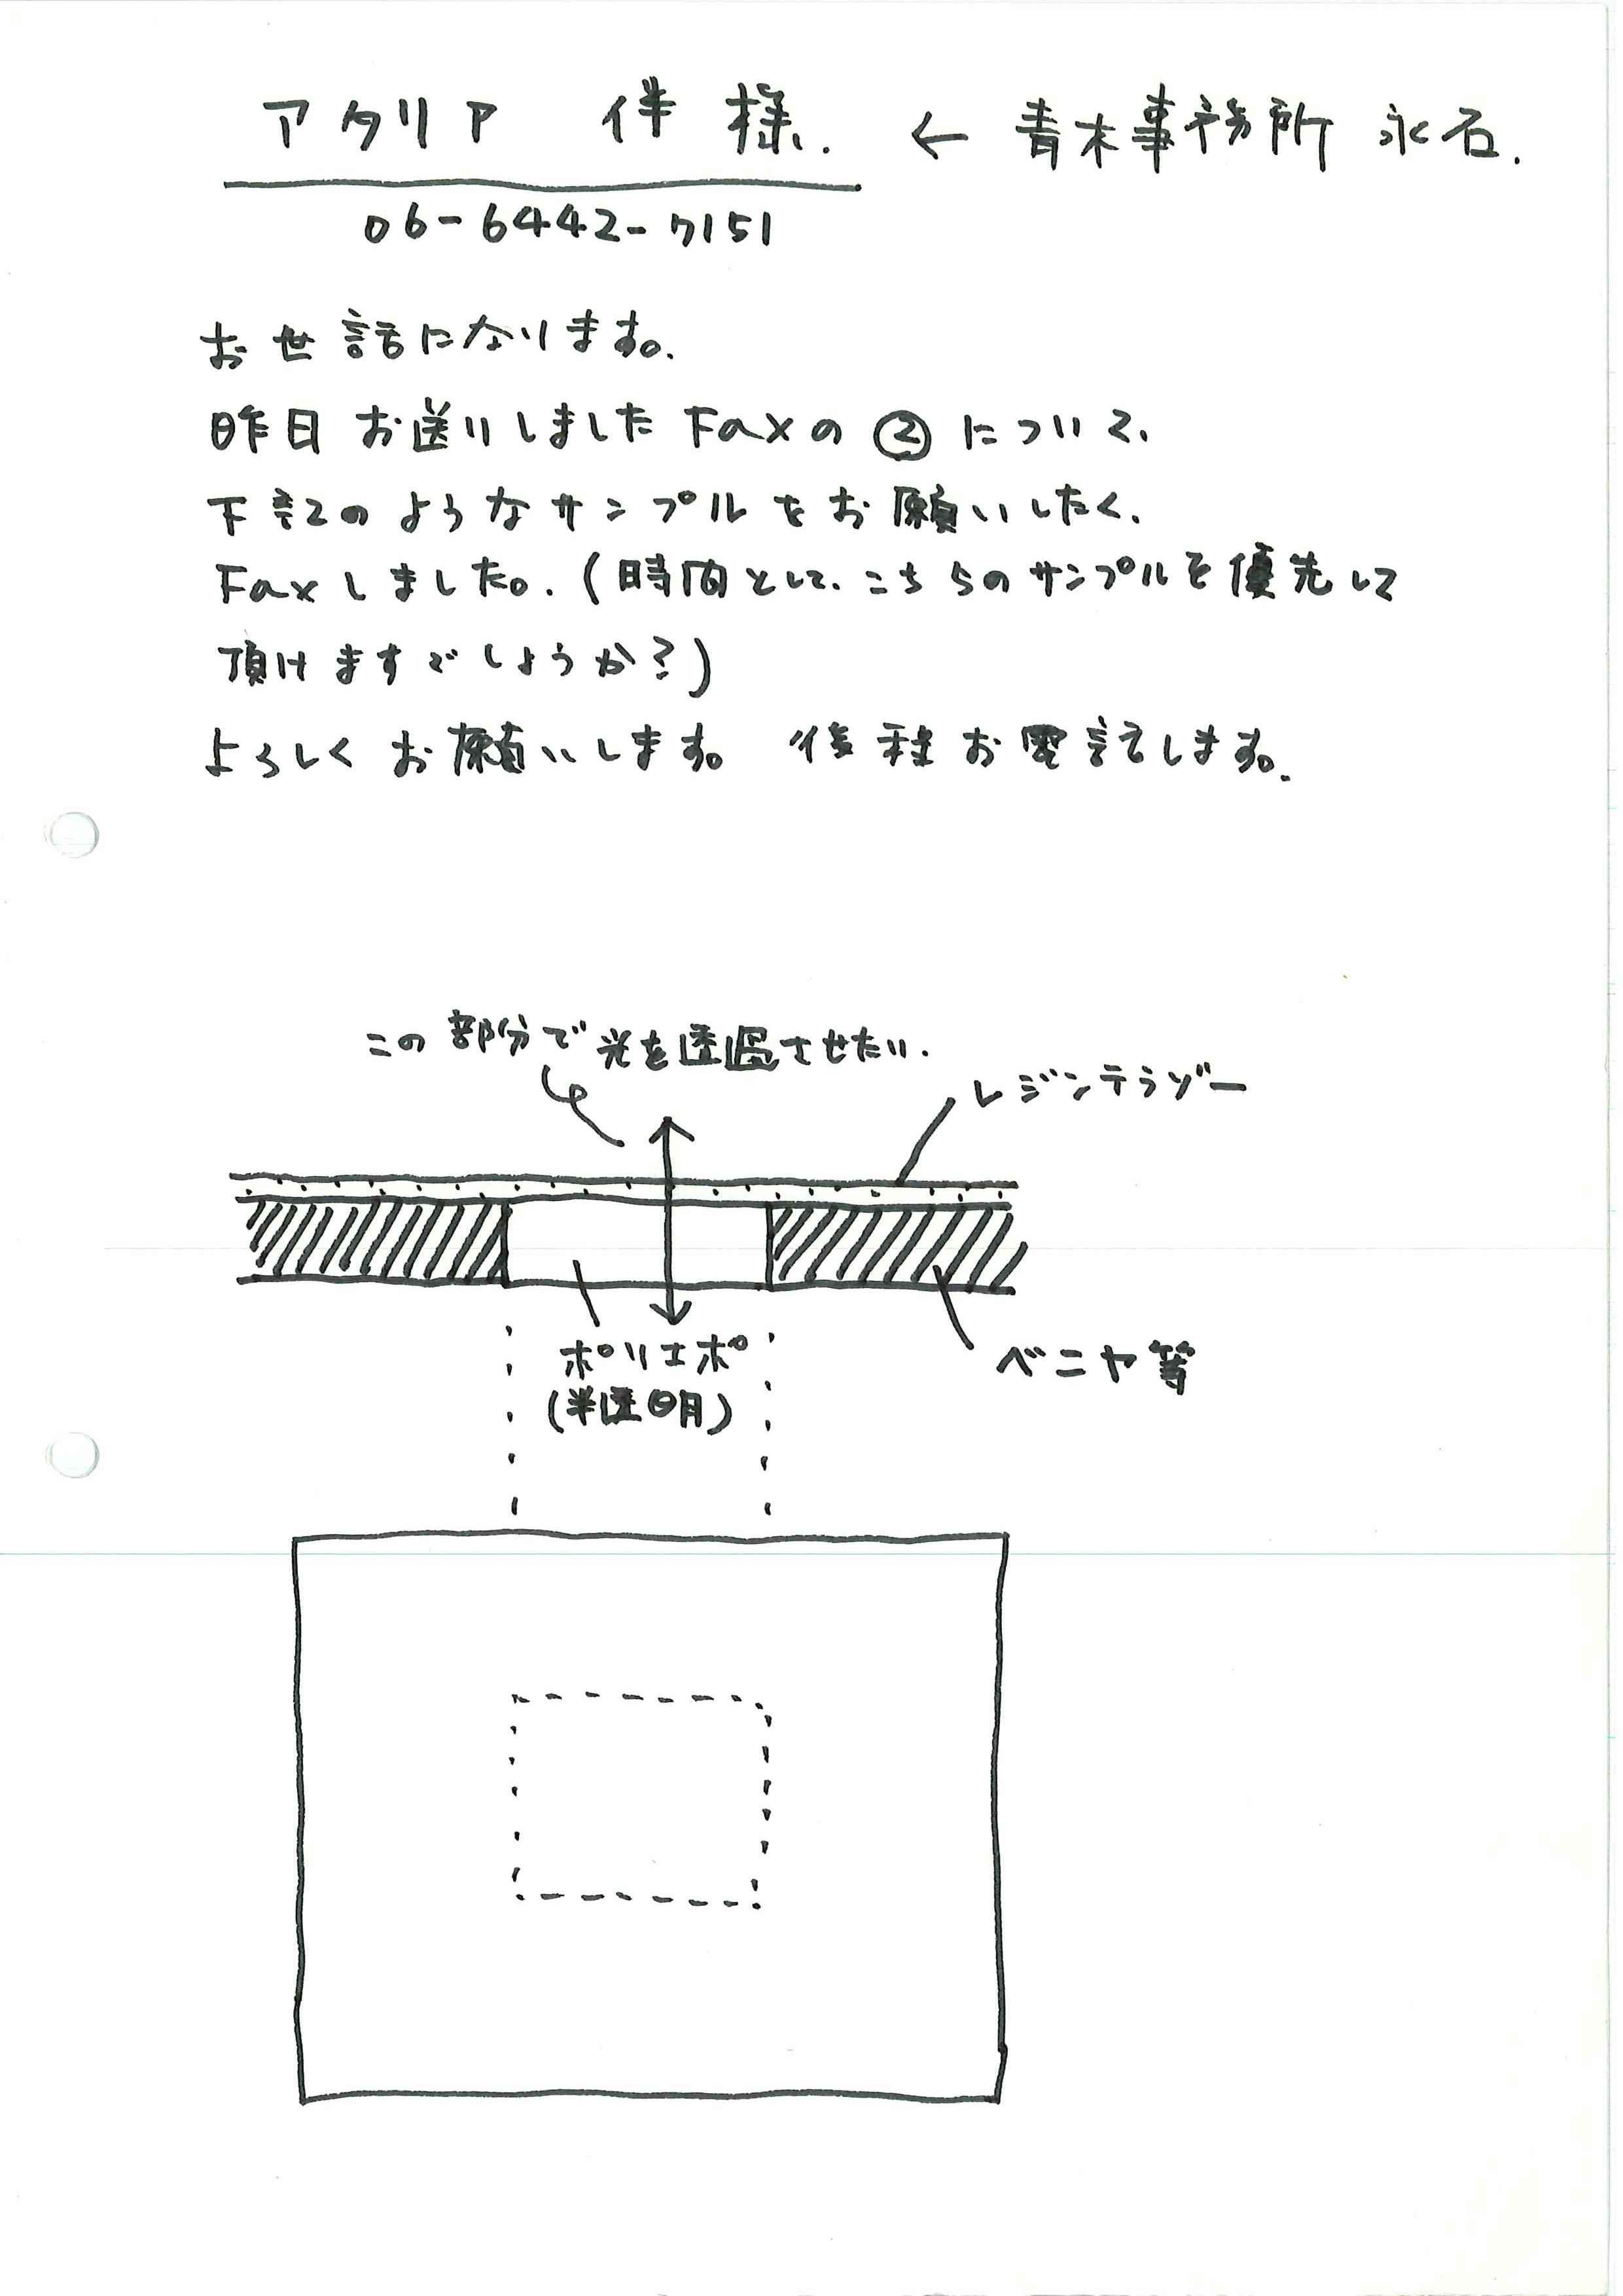 アタリア 伴 様. ← 青木事務所 永石.
06-6442-7151
お世話になります。
昨日お送りしましたFaxの②について、
下記のようなサンプルをお願いしたく、
Faxしました。(時間として、こちらのサンプルを優先して
頂けますでしょうか?)
よろしくお願いします。後程お電話します。
この部分で光を透過させたい.
レジンテラゾー
ポリエポ
(半透明)
ベニヤ等